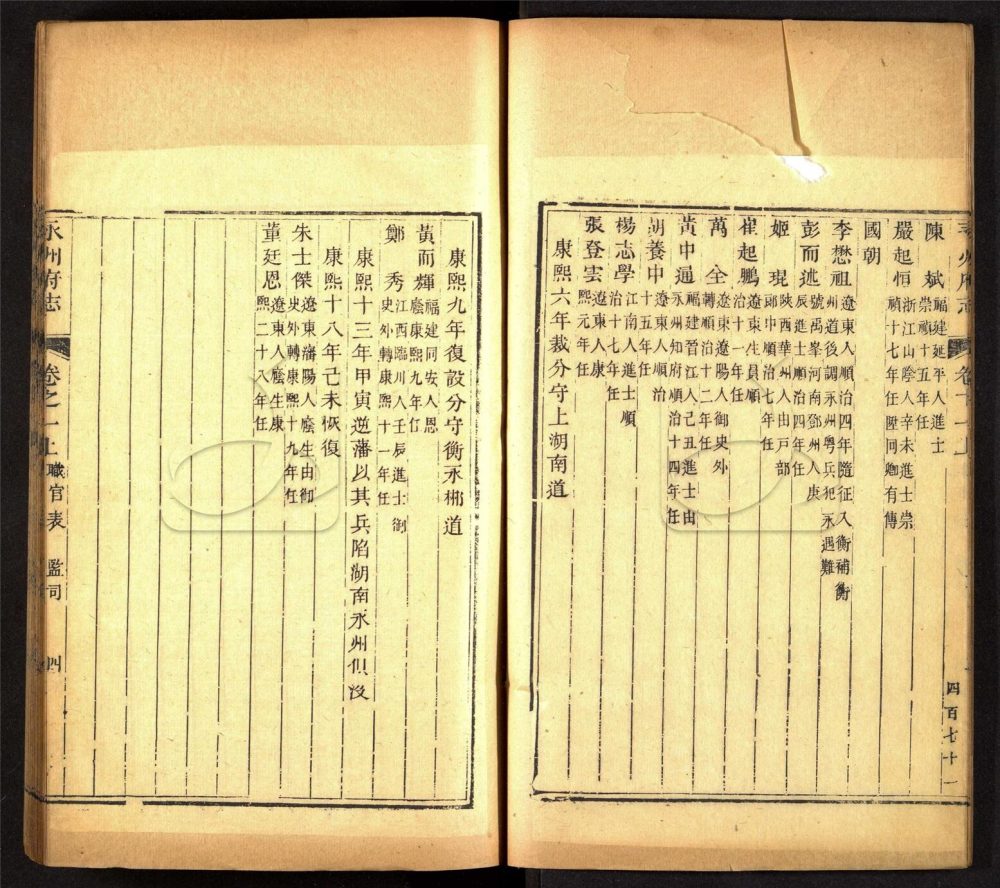 永州府志 卷之一上
四百七十一
陳　斌 福建延平人進士崇禎十五年任
嚴起恒 浙江山陰人辛未進士崇禎十七年任陞同卿有傳
國朝
李懋祖 遼東人順治四年隨征入衡補衡州道後調永州粵兵犯永遇難
彭而述 號禹峯河南鄧州人庚辰進士順治四年任
姬　琨 陝西華州人由戶部郎中順治七年任
崔起鵬 遼東生員順治十一年任
萬　全 遼東遼陽人御史外轉順治十二年任
黃中通 福建晉江人己丑進士由永州知府順治十四年任
胡養中 遼東人順治十五年任
楊志學 江南人進士順治十七年任
張登雲 遼東人康熙元年任
康熙六年裁分守上湖南道
康熙九年復設分守衡永郴道
黃而輝 福建同安人恩廕康熙九年任
鄭　秀 江西臨川人壬辰進士御史外轉康熙十一年任
康熙十三年甲寅逆藩以其兵陷湖南永州俱沒
康熙十八年己未恢復
朱士傑 遼東瀋陽人廕生由御史外轉康熙十九年任
董廷恩 遼東人廕生康熙二十八年任
永州府志 卷之一上 職官表 監司 四